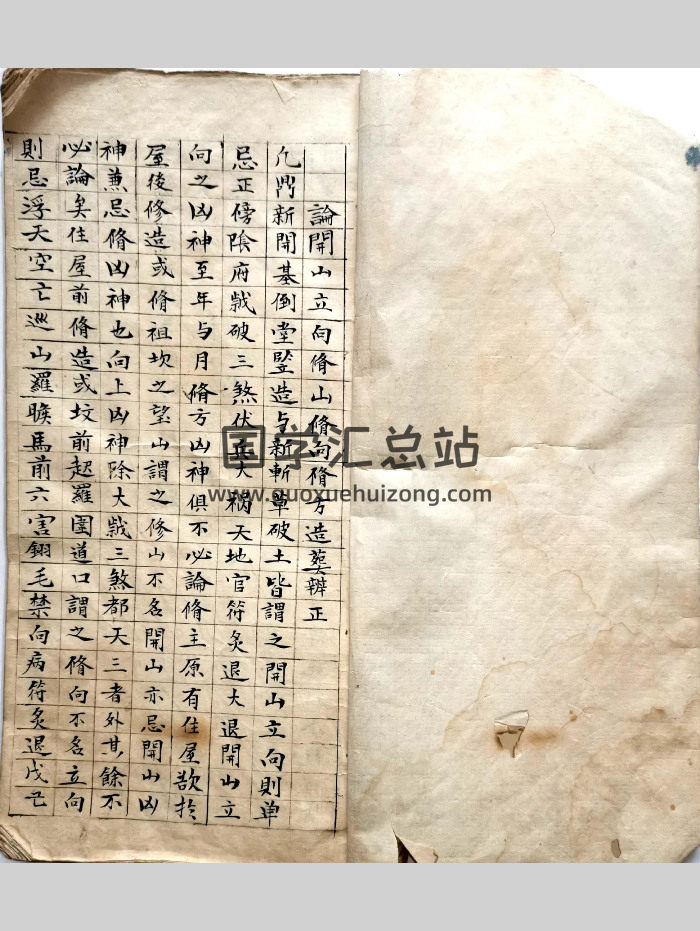 論開山立向脩山脩向脩方造葬辨正
凡鼎新開基倒堂竪造与新斬草破土皆謂之開山立向則单
忌正傍陰府戝破三煞伏兵大禍天地官符炙退大退開山立
向之凶神至年与月脩方凶神俱不必論脩主原有住屋欲扵
屋後修造或脩祖坎之望山謂之修山不名開山亦忌開山凶
神兼忌脩凶神也向上凶神除大戝三煞都天三者外其餘不
必論矣住屋前脩造或坟前起羅圍道口謂之脩向不名立向
則忌浮天空亡巡山羅睺馬前六害翎毛禁向病符炙退戊己
国学汇总站
www.guoxuehuizong.com